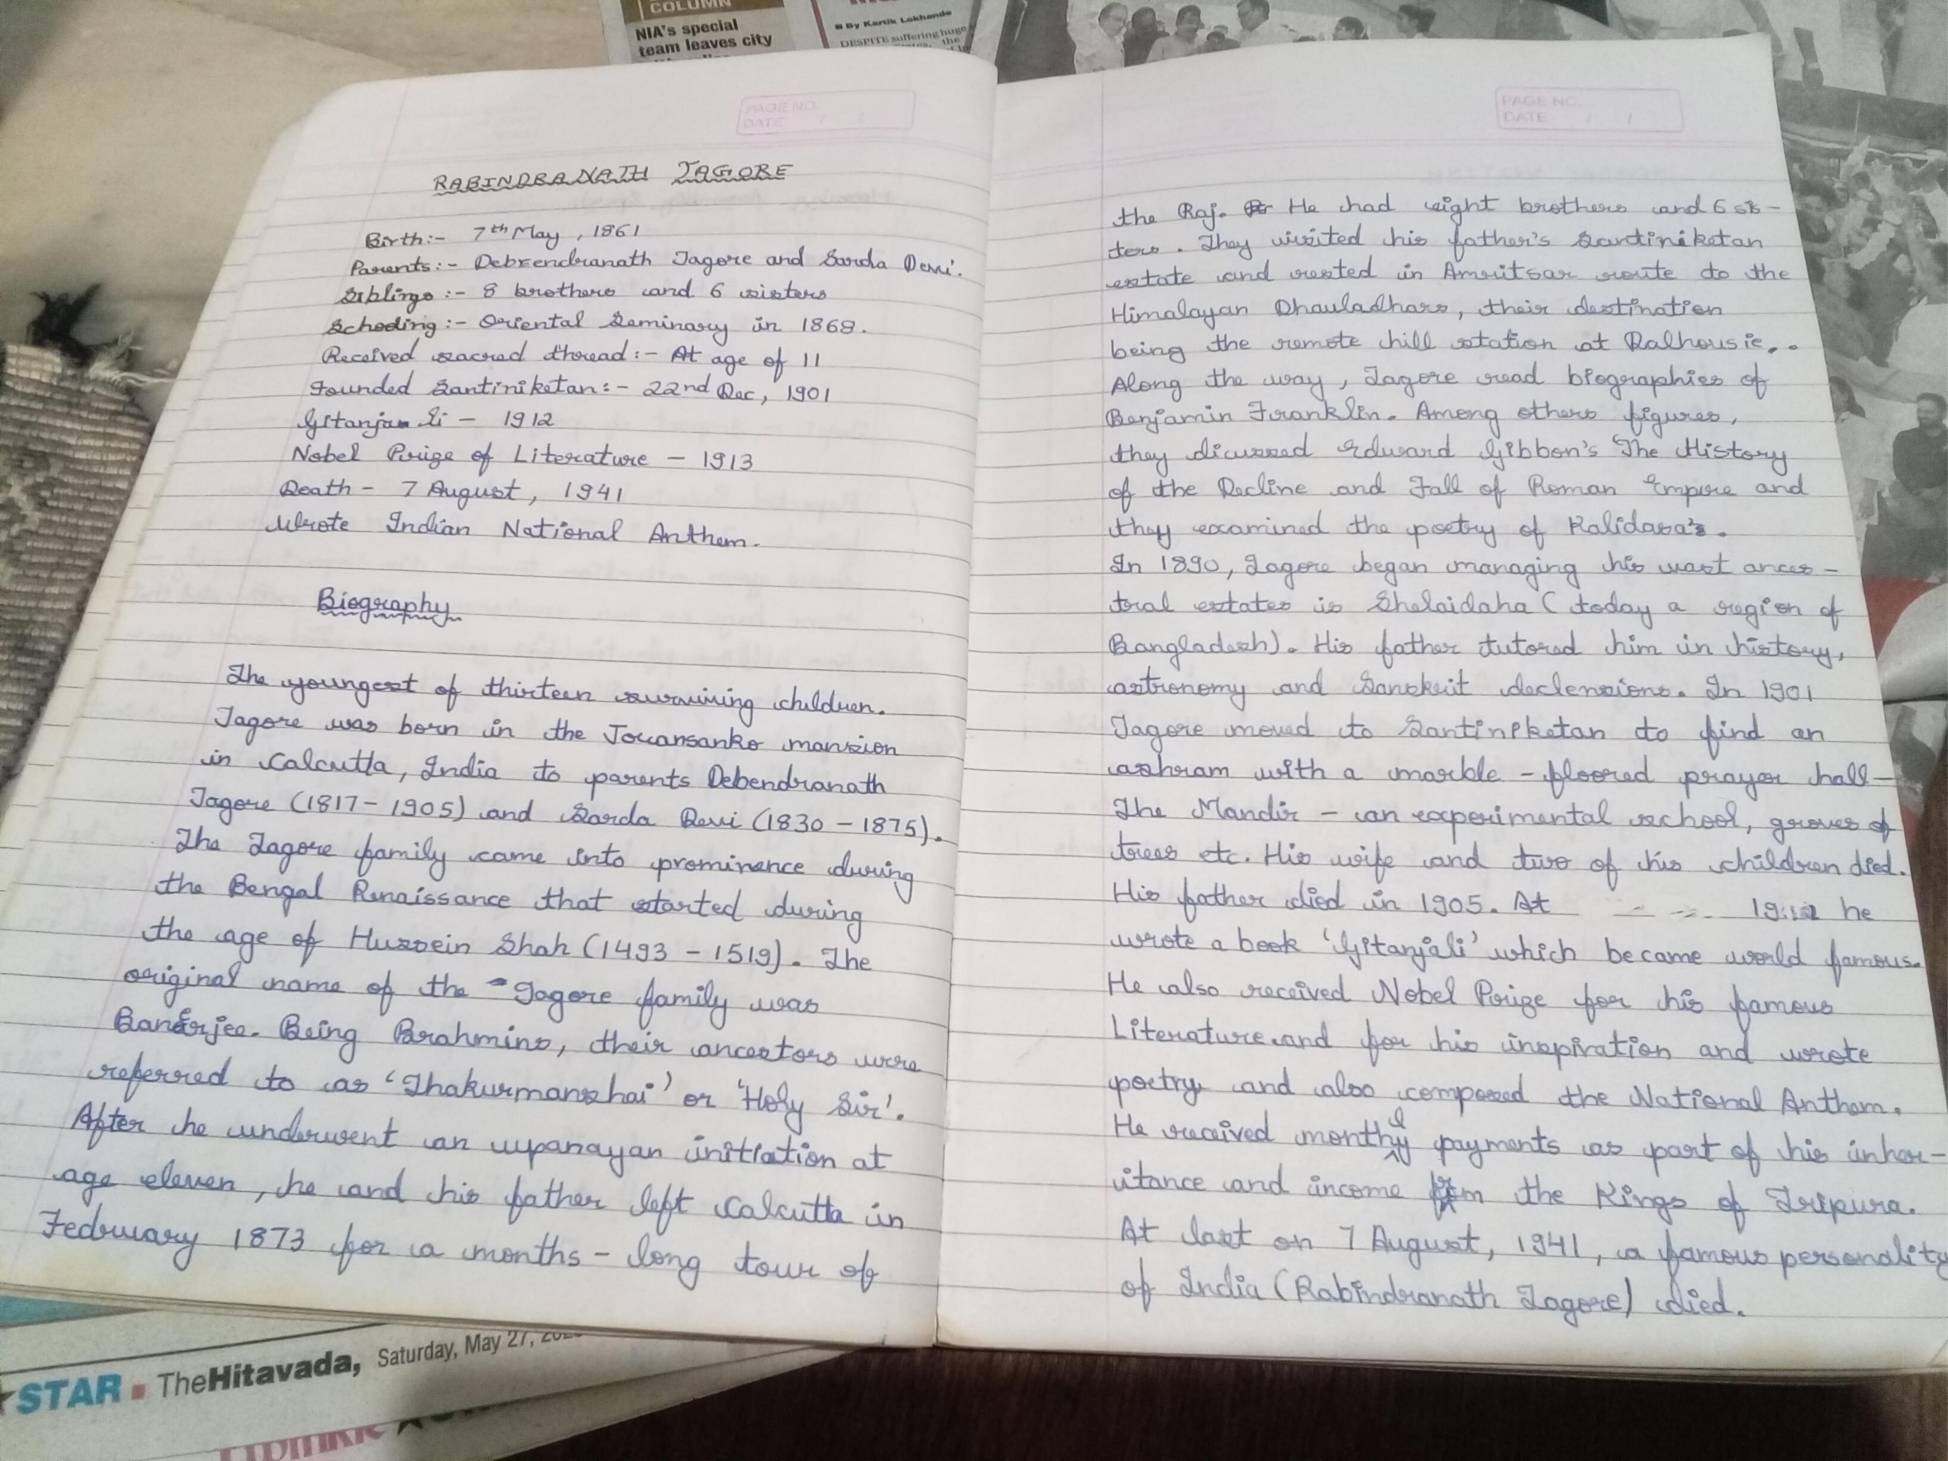 COLUMN
NIA's special
team leaves city
By Kartik Lokhande
DESPITE suffering huge
the
PAGE NO.
DATE / /
RABINDRANATH TAGORE
Birth:- 7th May, 1861
Parents:- Debrendranath Tagore and Sarda Devi.
Siblings:- 8 brothers and 6 sisters
Schooling:- Oriental Seminary in 1868.
Received sacred thread:- At age of 11
Founded Santiniketan:- 22nd Dec, 1901
Gitanjali - 1912
Nobel Prize of Literature - 1913
Death - 7 August, 1941
Wrote Indian National Anthem.
Biography
The youngest of thirteen surviving children.
Tagore was born in the Jorransanko mansion
in Calcutta, India to parents Debendranath
Tagore (1817-1905) and Sarda Devi (1830-1875).
The Tagore family came into prominence during
the Bengal Renaissance that started during
the age of Hussein Shah (1493-1519). The
original name of the Tagore family was
Banerjee. Being Brahmins, their ancestors were
referred to as 'Thakurmanshai' or 'Holy Sir'.
After he underwent an upanayan initiation at
age eleven, he and his father left Calcutta in
Febuary 1873 for a months-long tour of
PAGE NO.
DATE / /
the Raj. He had eight brothers and 6 sis-
ters. They visited his father's Santiniketan
estate and rested in Amritsar route to the
Himalayan Dhauladhars, their destination
being the remote hill station at Dalhousie..
Along the way, Tagore read biographies of
Benjamin Franklin. Among others figures,
they dicussed Edward Gibbon's The History
of the Decline and Fall of Roman Empire and
they examined the poetry of Kalidasa's.
In 1890, Tagore began managing his vast ances-
tral estates in Shelaidaha (today a region of
Bangladesh). His father tutored him in history,
astronomy and Sanskrit declensions. In 1901
Tagore moved to Santiniketan to find an
ashram with a marble-floored prayer hall-
The Mandir - an experimental school, groves of
trees etc. His wife and two of his children died.
His father died in 1905. At 1912 he
wrote a book 'Gitanjali' which became world famous.
He also received Nobel Prize for his famous
Literature and for his inspiration and wrote
poetry and also composed the National Anthem.
He received monthly payments as part of his inher-
itance and income from the Kings of Tripura.
At last on 7 August, 1941, a famous personality
of India (Rabindranath Tagore) died.
STAR TheHitavada, Saturday, May 27,